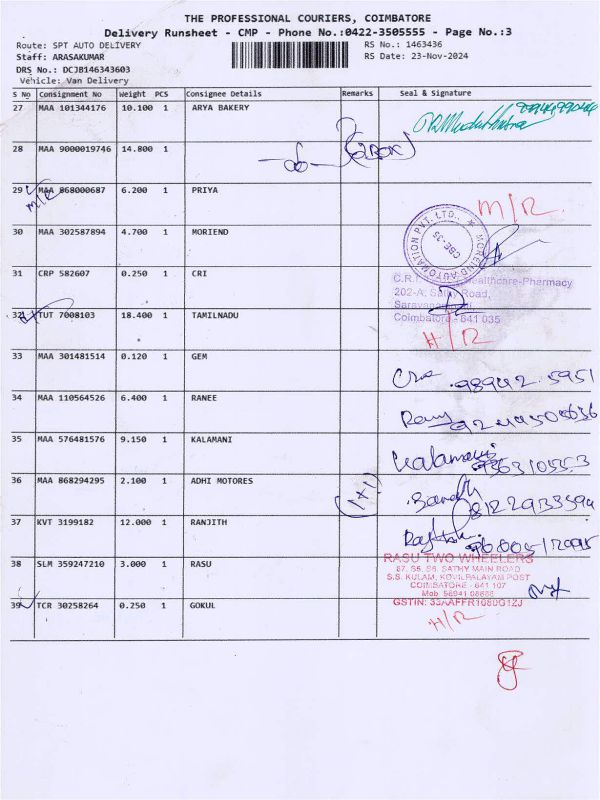 THE PROFESSIONAL COURIERS, COIMBATORE
Delivery Runsheet - CMP - Phone No.:0422-3505555 - Page No.:3
Route: SPT AUTO DELIVERY
RS No.: 1463436
Staff: ARASAKUMAR
RS Date: 23-Nov-2024
DRS No.: DCJB146343603
Vehicle: Van Delivery
S No Consignment No Weight PCS Consignee Details Remarks Seal & Signature
27 MAA 101344176 10.100 1 ARYA BAKERY
28 MAA 9000019746 14.800 1
(2BOX)
29 MAA 868000687 6.200 1 PRIYA
M/R M/R
30 MAA 302587894 4.700 1 MORIEND
MOREND AUTOMATION PVT. LTD., ★ CBE-35
31 CRP 582607 0.250 1 CRI
C.R.I. Healthcare-Pharmacy
202-A, Sathy Road,
Coimbatore - 641 035
32 TUT 7008103 18.400 1 TAMILNADU
H/R
33 MAA 301481514 0.120 1 GEM
98942 5951
34 MAA 110564526 6.400 1 RANEE
35 MAA 576481576 9.150 1 KALAMANI
Kalamani
36 MAA 868294295 2.100 1 ADHI MOTORES
(1x1)
37 KVT 3199182 12.000 1 RANJITH
38 SLM 359247210 3.000 1 RASU
RASU TWO WHEELERS
87, S5, S6, SATHY MAIN ROAD
S.S. KULAM, KOVILPALAYAM POST
COIMBATORE - 641 107
39 TCR 30258264 0.250 1 GOKUL
H/R